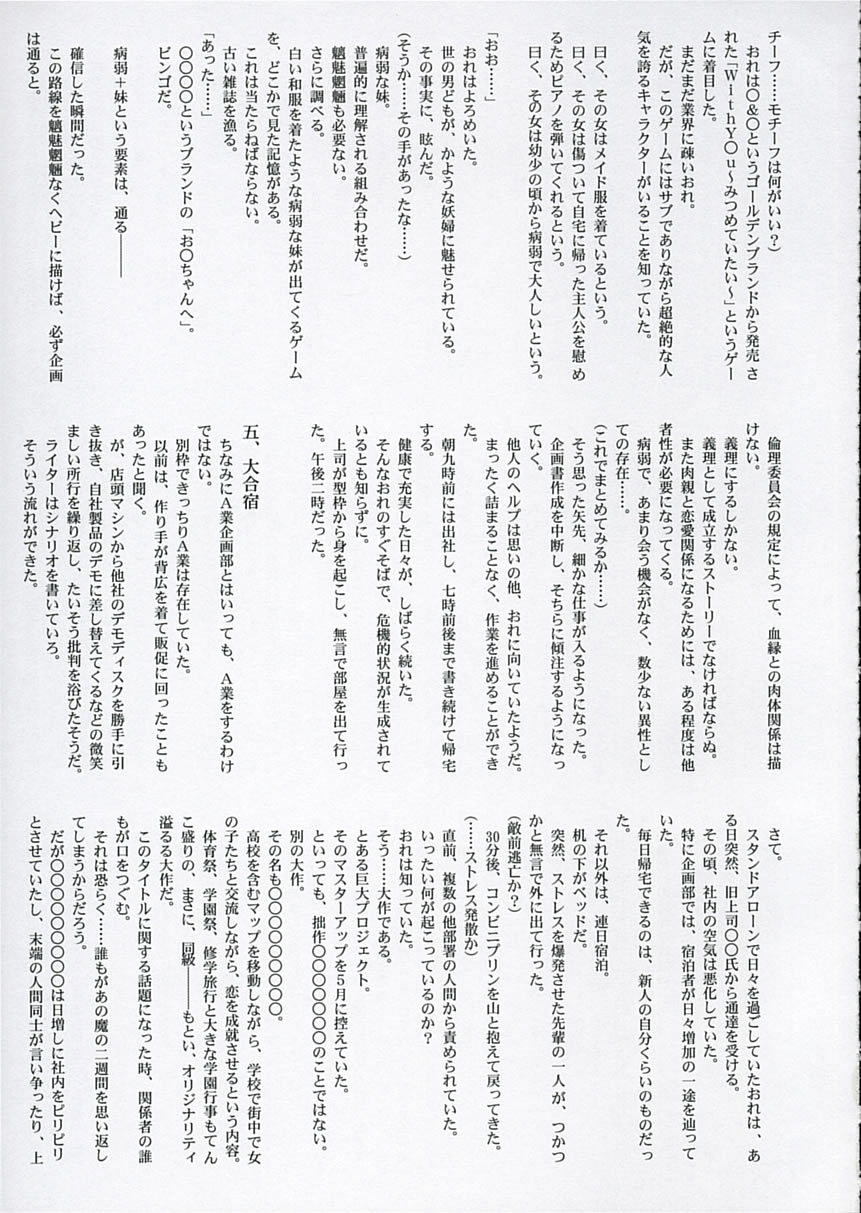 チーフ……モチーフは何がいい？）
　おれは〇＆〇というゴールデンブランドから発売さ
れた「ＷｉｔｈＹ〇ｕ～みつめていたい～」というゲー
ムに着目した。
　まだまだ業界に疎いおれ。
　だが、このゲームにはサブでありながら超絶的な人
気を誇るキャラクターがいることを知っていた。
　曰く、その女はメイド服を着ているという。
　曰く、その女は傷ついて自宅に帰った主人公を慰め
るためピアノを弾いてくれるという。
　曰く、その女は幼少の頃から病弱で大人しいという。
「おお……」
　おれはよろめいた。
　世の男どもが、かような妖婦に魅せられている。
　その事実に、眩んだ。
（そうか……その手があったな……）
　病弱な妹。
　普遍的に理解される組み合わせだ。
　魑魅魍魎も必要ない。
　さらに調べる。
　白い和服を着たような病弱な妹が出てくるゲーム
を、どこかで見た記憶がある。
　これは当たらねばならない。
　古い雑誌を漁る。
「あった……」
　〇〇〇〇というブランドの「お〇ちゃんへ」。
　ビンゴだ。
　病弱＋妹という要素は、通る――――
　確信した瞬間だった。
　この路線を魑魅魍魎なくヘビーに描けば、必ず企画
は通ると。
　倫理委員会の規定によって、血縁との肉体関係は描
けない。
　義理にするしかない。
　義理として成立するストーリーでなければならぬ。
　また肉親と恋愛関係になるためには、ある程度は他
者性が必要になってくる。
　病弱で、あまり会う機会がなく、数少ない異性とし
ての存在……。
（これでまとめてみるか……）
　そう思った矢先、細かな仕事が入るようになった。
　企画書作成を中断し、そちらに傾注するようになっ
ていく。
　他人のヘルプは思いの他、おれに向いていたようだ。
　まったく詰まることなく、作業を進めることができ
た。
　朝九時前には出社し、七時前後まで書き続けて帰宅
する。
　健康で充実した日々が、しばらく続いた。
　そんなおれのすぐそばで、危機的状況が生成されて
いるとも知らずに。
　上司が型枠から身を起こし、無言で部屋を出て行っ
た。午後二時だった。
五、大合宿
　ちなみにＡ業企画部とはいっても、Ａ業をするわけ
ではない。
　別枠できっちりＡ業は存在していた。
　以前は、作り手が背広を着て販促に回ったことも
あったと聞く。
　が、店頭マシンから他社のデモディスクを勝手に引
き抜き、自社製品のデモに差し替えてくるなどの微笑
ましい所行を繰り返し、たいそう批判を浴びたそうだ。
　ライターはシナリオを書いていろ。
　そういう流れができた。
　さて。
　スタンドアローンで日々を過ごしていたおれは、あ
る日突然、旧上司〇〇氏から通達を受ける。
　その頃、社内の空気は悪化していた。
　特に企画部では、宿泊者が日々増加の一途を辿って
いた。
　毎日帰宅できるのは、新人の自分くらいのものだっ
た。
　それ以外は、連日宿泊。
　机の下がベッドだ。
　突然、ストレスを爆発させた先輩の一人が、つかつ
かと無言で外に出て行った。
（敵前逃亡か？）
　30分後、コンビニプリンを山と抱えて戻ってきた。
（……ストレス発散か）
　直前、複数の他部署の人間から責められていた。
　いったい何が起こっているのか？
　おれは知っていた。
　そう……大作である。
　とある巨大プロジェクト。
　そのマスターアップを５月に控えていた。
　といっても、拙作〇〇〇〇〇〇〇のことではない。
　別の大作。
　その名も〇〇〇〇〇〇〇〇〇。
　高校を含むマップを移動しながら、学校で街中で女
の子たちと交流しながら、恋を成就させるという内容。
　体育祭、学園祭、修学旅行と大きな学園行事もてん
こ盛りの、まさに、同級――――もとい、オリジナリティ
溢るる大作だ。
　このタイトルに関する話題になった時、関係者の誰
もが口をつぐむ。
　それは恐らく……誰もがあの魔の二週間を思い返し
てしまうからだろう。
　だが〇〇〇〇〇〇〇〇〇は日増しに社内をピリピリ
とさせていたし、末端の人間同士が言い争ったり、上